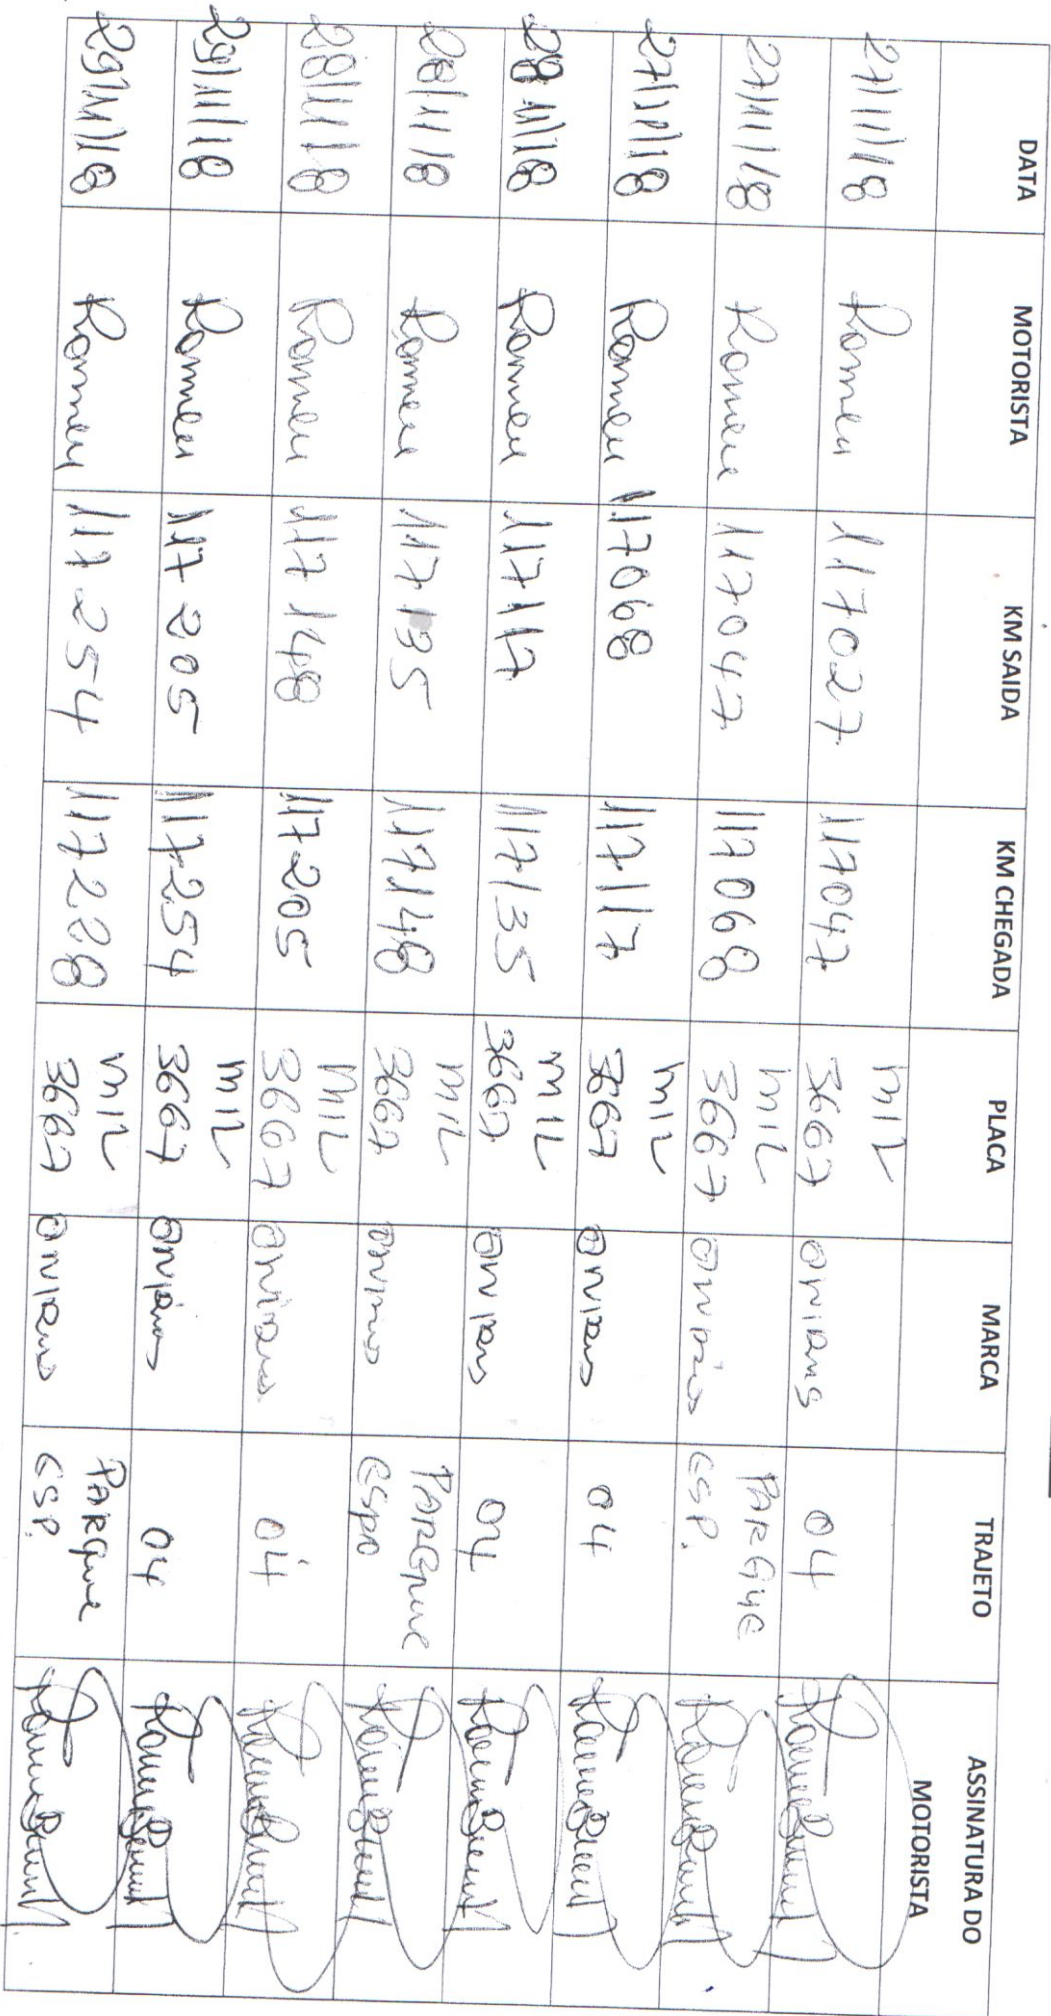 DATA MOTORISTA KM SAIDA KM CHEGADA PLACA MARCA TRAJETO ASSINATURA DO
MOTORISTA
27/11/18 Romeu 117027 117047 MIL
3667 onibus 04
27/11/18 Romeu 117047 117068 MIL
3667 onibus PARQUE
ESP.
27/11/18 Romeu 117068 117117 MIL
3667 onibus 04
28/11/18 Romeu 117117 117135 MIL
3667 onibus 04
28/11/18 Romeu 117135 117148 MIL
3667 onibus PARQue
ESPO
28/11/18 Romeu 117148 117205 MIL
3667 onibus 04
29/11/18 Romeu 117205 117254 MIL
3667 onibus 04
29/11/18 Romeu 117254 117288 MIL
3667 onibus PARQue
ESP.